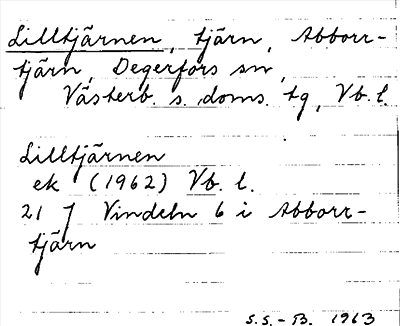 Lilltjärnen, tjärn, Abborr-
tjärn, Degerfors sn,
Västerb. s. doms. tg, Vb. l.
Lilltjärnen
ek (1962) Vb. l.
21 J Vindeln 6 i Abborr-
tjärn
S.S.-B. 1963